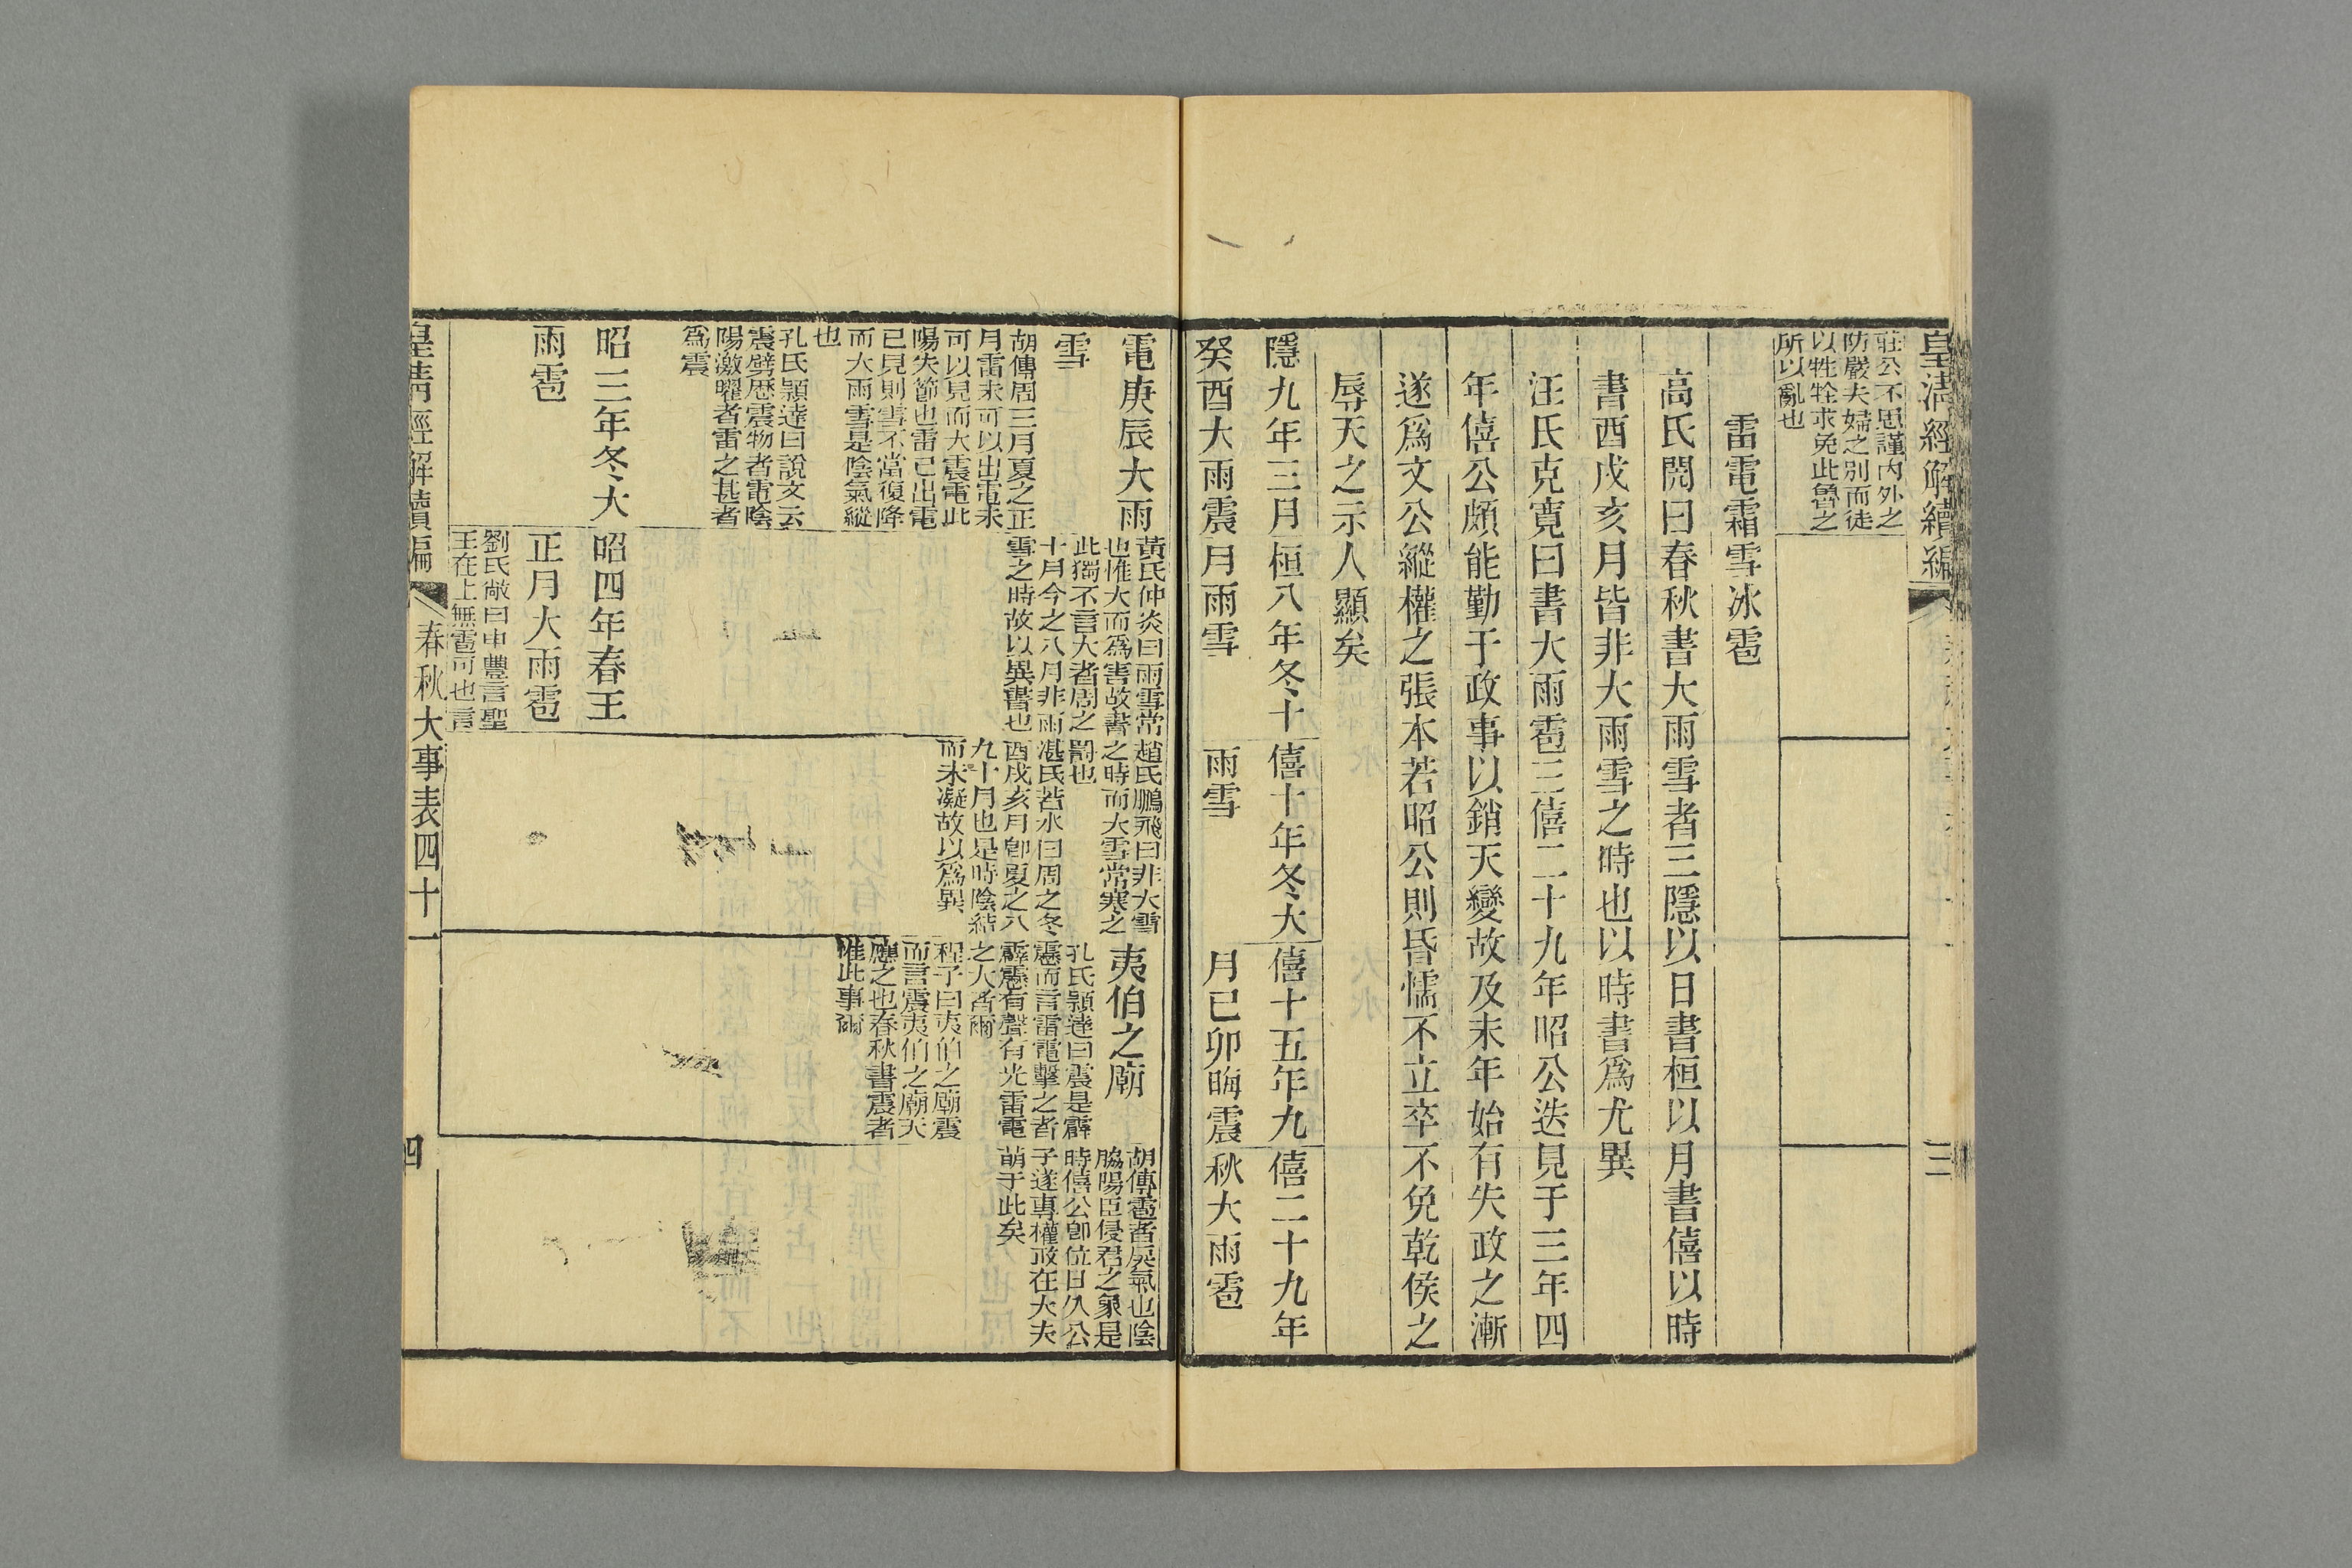 皇清經解續編
三
莊公不思謹內外之
防嚴夫婦之別而徒
以牲牷求免此魯之
所以亂也
雷電霜雪冰雹
高氏閌曰春秋書大雨雪者三隱以日書桓以月書僖以時
書酉戌亥月皆非大雨雪之時也以時書爲尤異
汪氏克寬曰書大雨雹三僖二十九年昭公迭見于三年四
年僖公頗能勤于政事以銷天變故及末年始有失政之漸
遂爲文公縱權之張本若昭公則昏懦不立卒不免乾侯之
辱天之示人顯矣
隱九年三月
癸酉大雨震
電庚辰大雨
雪
胡傳周三月夏之正
月雷未可以出電未
可以見而大震電此
陽失節也雷已出電
已見則雪不當復降
而大雨雪是陰氣縱
也
孔氏頴達曰說文云
震劈歷震物者電陰
陽激曜者雷之甚者
爲震
桓八年冬十
月雨雪
黃氏仲炎曰雨雪常
也惟大而爲害故書
此獨不言大者周之
十月今之八月非雨
雪之時故以異書也
僖十年冬大
雨雪
趙氏鵬飛曰非大雪
之時而大雪常寒之
罰也
湛氏若水曰周之冬
酉戌亥月卽夏之八
九十月也是時陰結
而未凝故以爲異
僖十五年九
月己卯晦震
夷伯之廟
孔氏頴達曰震是霹
靂而言雷電擊之者
霹靂有聲有光雷電
之大者爾
程子曰夷伯之廟震
而言震夷伯之廟天
應之也春秋書震者
惟此事爾
僖二十九年
秋大雨雹
胡傳雹者戾氣也陰
脇陽臣侵君之象是
時僖公卽位日久公
子遂專權政在大夫
萌于此矣
昭三年冬大
雨雹
昭四年春王
正月大雨雹
劉氏敞曰申豐言聖
王在上無雹可也言
皇清經解續編
春秋大事表四十一
四